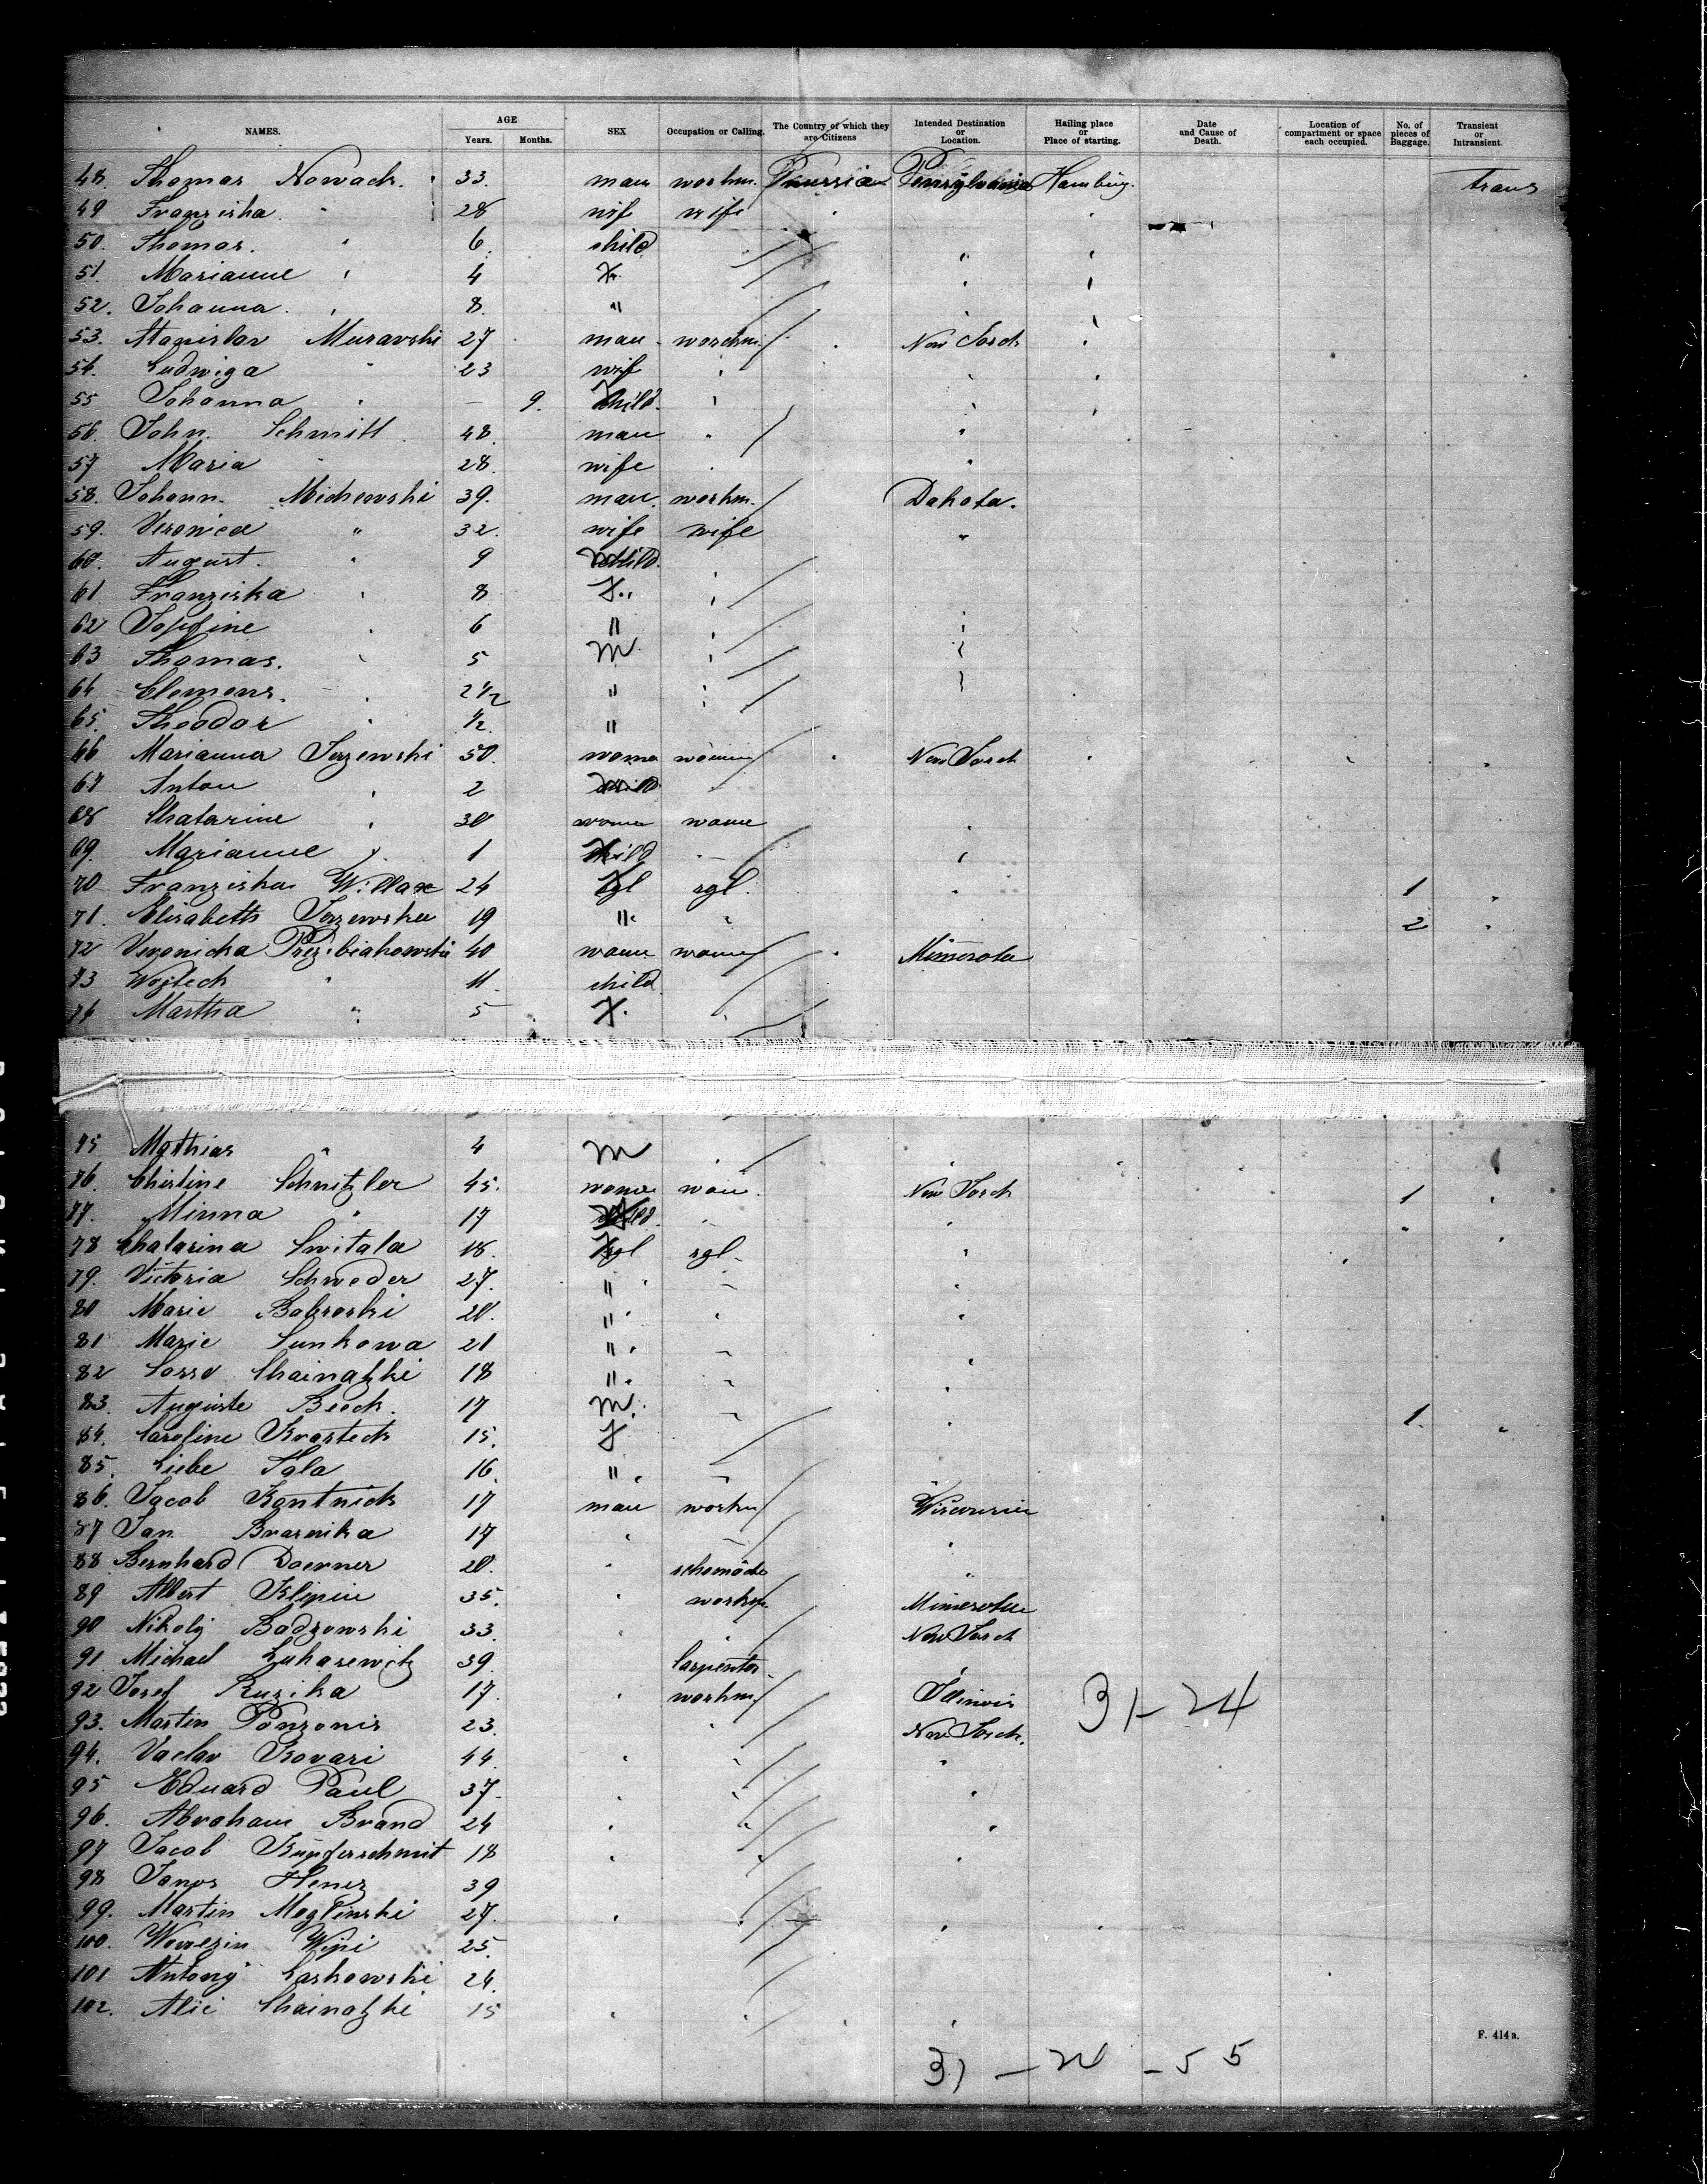 NAMES. AGE Years. Months. SEX Occupation or Calling. The Country of which they are Citizens Intended Destination or Location. Hailing place or Place of starting. Date and Cause of Death. Location of compartment or space each occupied. No. of pieces of Baggage. Transient or Intransient.
48. Thomas Nowack. 33. man workm. Prussia Pensylvania Hamburg. trans
49 Franziska " 28 wif wife
50. Thomas. " 6. child
51 Marianne " 4 F.
52. Johanna. " 8. "
53. Stanislav Muravski 27 man workm. New Jorck
54. Ludwiga " 23 wif "
55 Johanna " — 9. child. "
56. John. Schmitt 48. man "
57 Maria " 28. wife
58. Johann. Michowski 39. man. workm. Dakota.
59. Veronica " 32. wife wife "
60. August. " 9 child.
61 Franziska " 8 F. "
62 Josefine " 6 " "
63 Thomas. " 5 M "
64 Clemens. " 2 1/2 " "
65. Theodor " 1/2. "
66 Marianna Jerzewski 50. woma New Jorck
67 Anton " 2
68 Chatarine " 30 "
69. Marianne " 1 child
70 Franziska 24 sgl sgl. " 1 "
71. Elisabeth Jerzewska 19 " " 2 "
72 Veronicka 40 Minesota
73 Wojtech " 11. child
74 Martha " 5 F.
75 Mathias " 4 M
76. Christine Schnitzler 45. New Jorck 1 "
77. Minna " 17
78 Chatarina Switala 18. sgl sgl.
79. Victoria Schweder 27. "
80 Marie Bobroski 20. " "
81 Marie Sunkowa 21 "
82 Sosso Chainatzki 18 "
83. Auguste Beeck. 17 M. 1.
84. Caroline Kvasteck 15. F
85. Liebe Sola 16. "
86. Jacob Kontnick 17 man workm
87 Jan 17 "
88 Bernhard Doerner 20. "
89 Albert Klipin 35. " Minesota
90 Nikoly Bodzowski 33. " New Jorck
91 Michael Lukasewitz 39. Carpenter
92 Josef Ruzika 17. " workm Illinois 31-24
93. Martin Ponzonis 23. " New Jorck.
94. Vaclav Kovari 44. "
95 Eduard Paul 37. "
96. Abraham Brand 24 "
97 Jacob Kupferschmit 18 "
98 Janos Henez 39
99. Martin Moglinski 27. "
100. Wipi 25.
101 Antony Laskowski 24.
102. Alie Chainatzki 15 "
F. 414a.
31 — 20 — 55